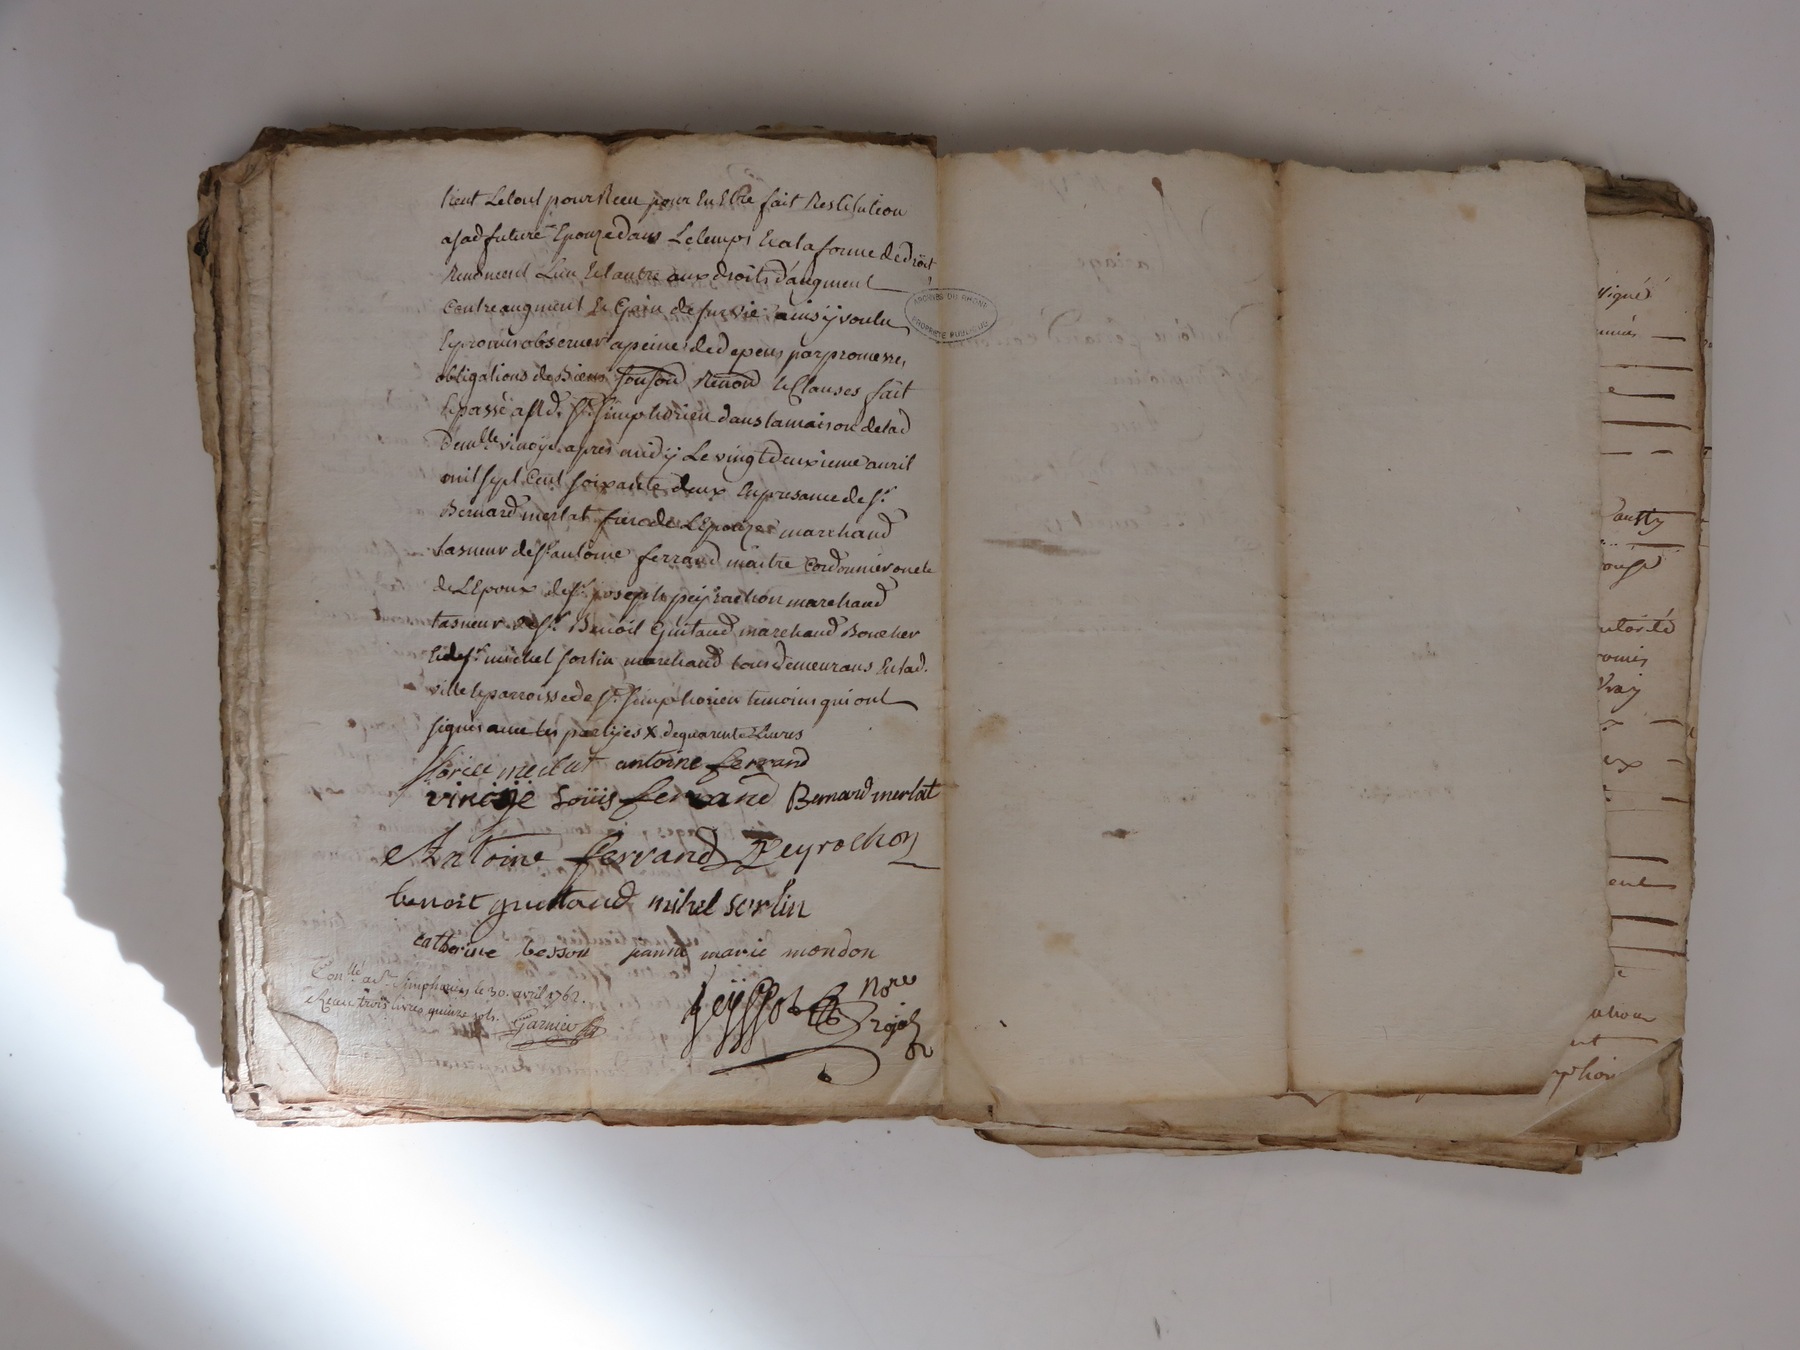 tient Le tout pour Receu pour En Etre fait Restitution
a sad future Epouze dans Le temps Et a la forme de droit
Renoncent L'un Et L'autre aux droits d'augment
Contreaugment Et Gain de survie ainsy voulu
Et promis observer a peine de depens par promesse,
obligations de Biens Et Clauses fait
Et passé aud. St. Simphorien dans la maison de lad
Demlle vinoÿe apres midÿ Le vingt deuxieme avril
mil sept Cent soixante deux En presance de sr
Bernard merlat frere de L'Epouze marchand
taneur de sr antoine ferrand maître Cordonnier oncle
de L'Epoux de sr joseph peÿrachon marchand
taneur de sr Benoit Guitaud marchand Boucher
Et de sr michel sorlin marchand tous demeurans En lad.
ville Et parroisse de St. Simphorien temoins qui ont
signés avec les partÿes X de quarente Livres
merlat antoine ferrand
vinoÿe Loüis ferrand Bernard merlat
Antoine ferrand Peyrachon
benoit guittaud mihel sorlin
catherine besson janne marie mondon
Conllé a St. Simphorien le 30. avril 1762.
Reçu trois livres quinze sols. Garnier
Nore
Royal
ARCHIVES DU RHONE
PROPRIETE PUBLIQUE